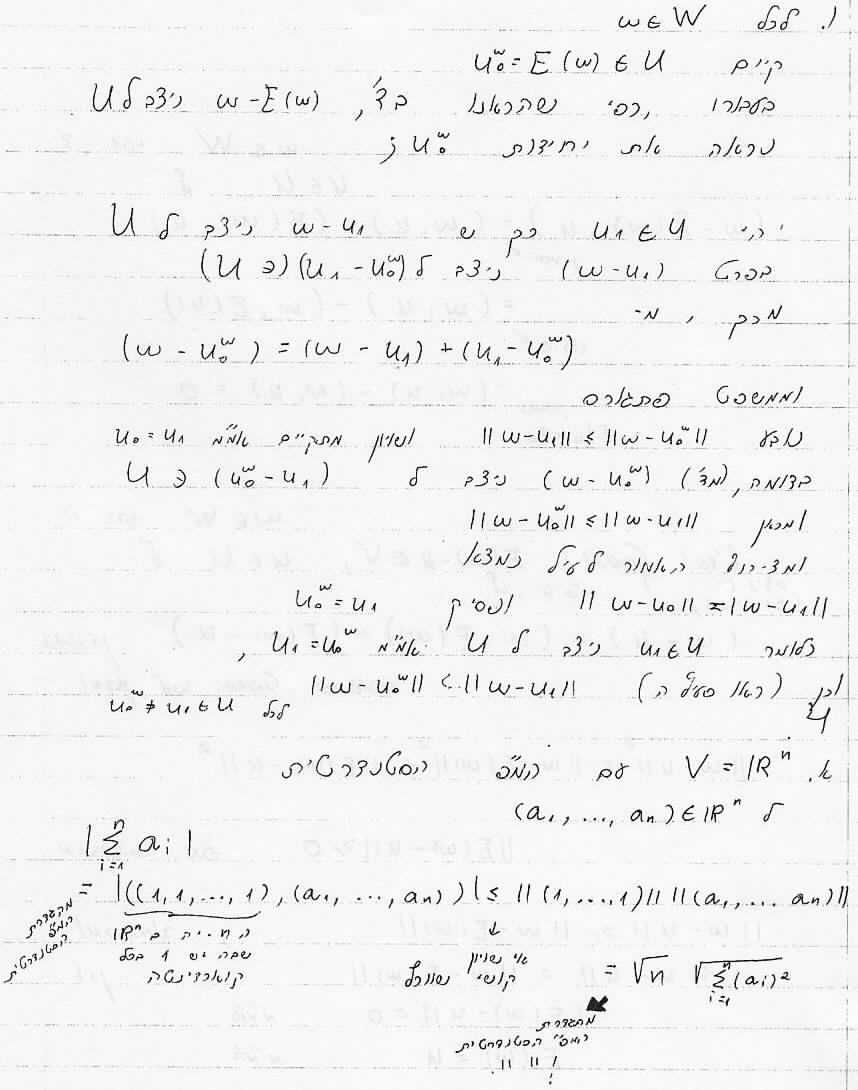 ו. לכל w ∈ W
קיים u₀ʷ = E(w) ∈ U
בעבורו, כפי שהראנו בד', w - E(w) ניצב ל U
נראה את יחידות u₀ʷ ;
יהי u₁ ∈ U כך ש w - u₁ ניצב ל U
בפרט (w - u₁) ניצב ל (u₁ - u₀ʷ) (∈ U)
מכך, מ-
(w - u₀ʷ) = (w - u₁) + (u₁ - u₀ʷ)
וממשפט פתגורס
נובע ||w - u₁|| ≤ ||w - u₀ʷ|| ושויון מתקיים אמ"מ u₀ = u₁
בדומה, (מד') (w - u₀ʷ) ניצב ל (u₀ʷ - u₁) ∈ U
ומכאן ||w - u₀ʷ|| ≤ ||w - u₁||
ומצירוף האמור לעיל נמצא
||w - u₀|| = ||w - u₁|| ונסיק u₀ʷ = u₁
כלומר u₁ ∈ U ניצב ל U אמ"מ u₁ = u₀ʷ ,
וכן (ראו סעיף ה) ||w - u₀ʷ|| < ||w - u₁|| לכל u₀ʷ ≠ u₁ ∈ U
א. V = ℝⁿ עם המ"פ הסטנדרטית
ל (a₁, ..., aₙ) ∈ ℝⁿ
|∑ᵢ₌₁ⁿ aᵢ|
= |((1,1,...,1), (a₁, ..., aₙ))| ≤ ||(1,...,1)|| ||(a₁, ... aₙ)||
מהגדרת המ"פ הסטנדרטית
ב ℝⁿ
שבה יש 1 בכל
קואורדינטה
אי שויון
קושי שוורץ
= √n √∑ᵢ₌₁ⁿ(aᵢ)²
מהגדרת
המ"פ הסטנדרטית
ו || ||